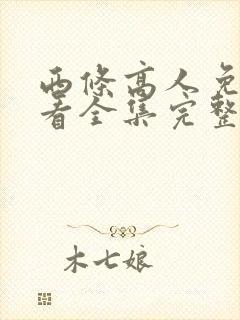 西條高人免
看全集完整
木七娘